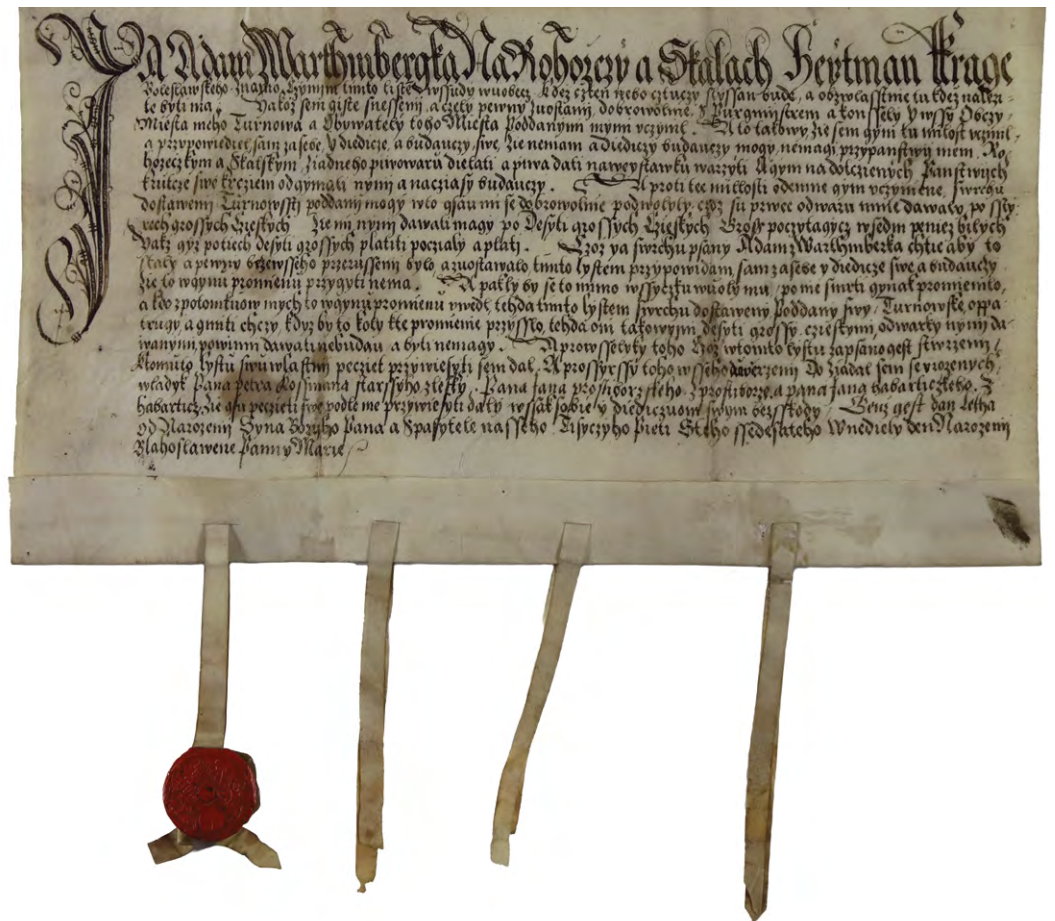 Ja Adam z Warthmbergka Na Rohozczy a Skalach Heytman Krage
Boleslawskeho Znamo czynym timto listem wssudy wuobecz kdez czten nebo cztuczy slyssan bude, a obzwlasstnie tu kdez nalezi-
te byti ma. Jakoz sem giste snesseny a czely pewny zuostany, dobrowolnie, z Purgmystrem a konssely y wssy Obczy
Miesta meho Turnowa a Obywately toho Miesta Poddanymi mymi vczynil. A to takowy, zie sem gym tu milost vczinil
a przypowiediel, sam za sebe, y diedicze, a budauczy, swe, zie nemam a diediczy budauczy mogy, nemagi przy panstwij mem Ro-
hozeczkym a Skalskym, ziadneho piwowaru dielati a piwa dati na weystawku warzyti A gym na dotczienych Panstwych
krticze swe krcziem odgymati nynij a na cziasy budauczy. A proti tee milosti odemne gym vczymene, swrchu
dostaweny Turnowsstij poddani mogy w to gsau mi se dobrowolnie podwolyly, czoz su prwee od waru mnie dawaly, po ssty-
rech grossych Czieskych zie mi nynij dawati magy po Desyti grossych Czieskych Gross poczytagycz w sedm peniez bilych
Yakz gyz po tiech desyti grossych platiti poczialy a platj. Czoz ya swrchu psany Adam z Warthmberka chtie aby to
staly a pewny bezewsseho przerussenij bylo, a zuostawalo timto lystem przypowidam, sam za sebe y diedicze swe, a budauchy
zie to w gynu promienu przygyti nema. A paklyby se to mimo wssyczku wuoly mu, po me smrti gynak promienilo,
a kdo z potomkuow mych to w gynu promienu vwedl, tehda timto lystem swrchu dostaweny Poddany swy Turnowske, oppa-
trugy, a gmiti chczy, kdyz by to koly k te promienie przysslo, tehda oni takowym, desyti grossy, czieskymi od warky nynij da-
wanymi, powinni dawati nebudau, a byti nemagy. A pro wssetzky toho Czoz w tomto lystu zapsano gest stwrzeni k
Komuto lystu swu wlastni peczet przywiesyti sem dal, A pro ssyrssy toho wsseho dowerzeni Dozadal sem se vrozenych
wladyk Pana Petra Kossmana starssyho z lessky. Pana Jana Prostiborzskeho z Prostiborze, a pana Jana habarticzkeho. Z
habarticz, zie gsu peczieti swe podle me przywiesyti daly wssak sobie y diediczuom swym bezsskody. Genz gest dan Letha
Od Narozeni Syna Bozyho Pana a Spasytele nasseho. Tisyczyho Pieti Steho ssedesateho W nediely den Narozeni
Blahoslawene Panny Marie